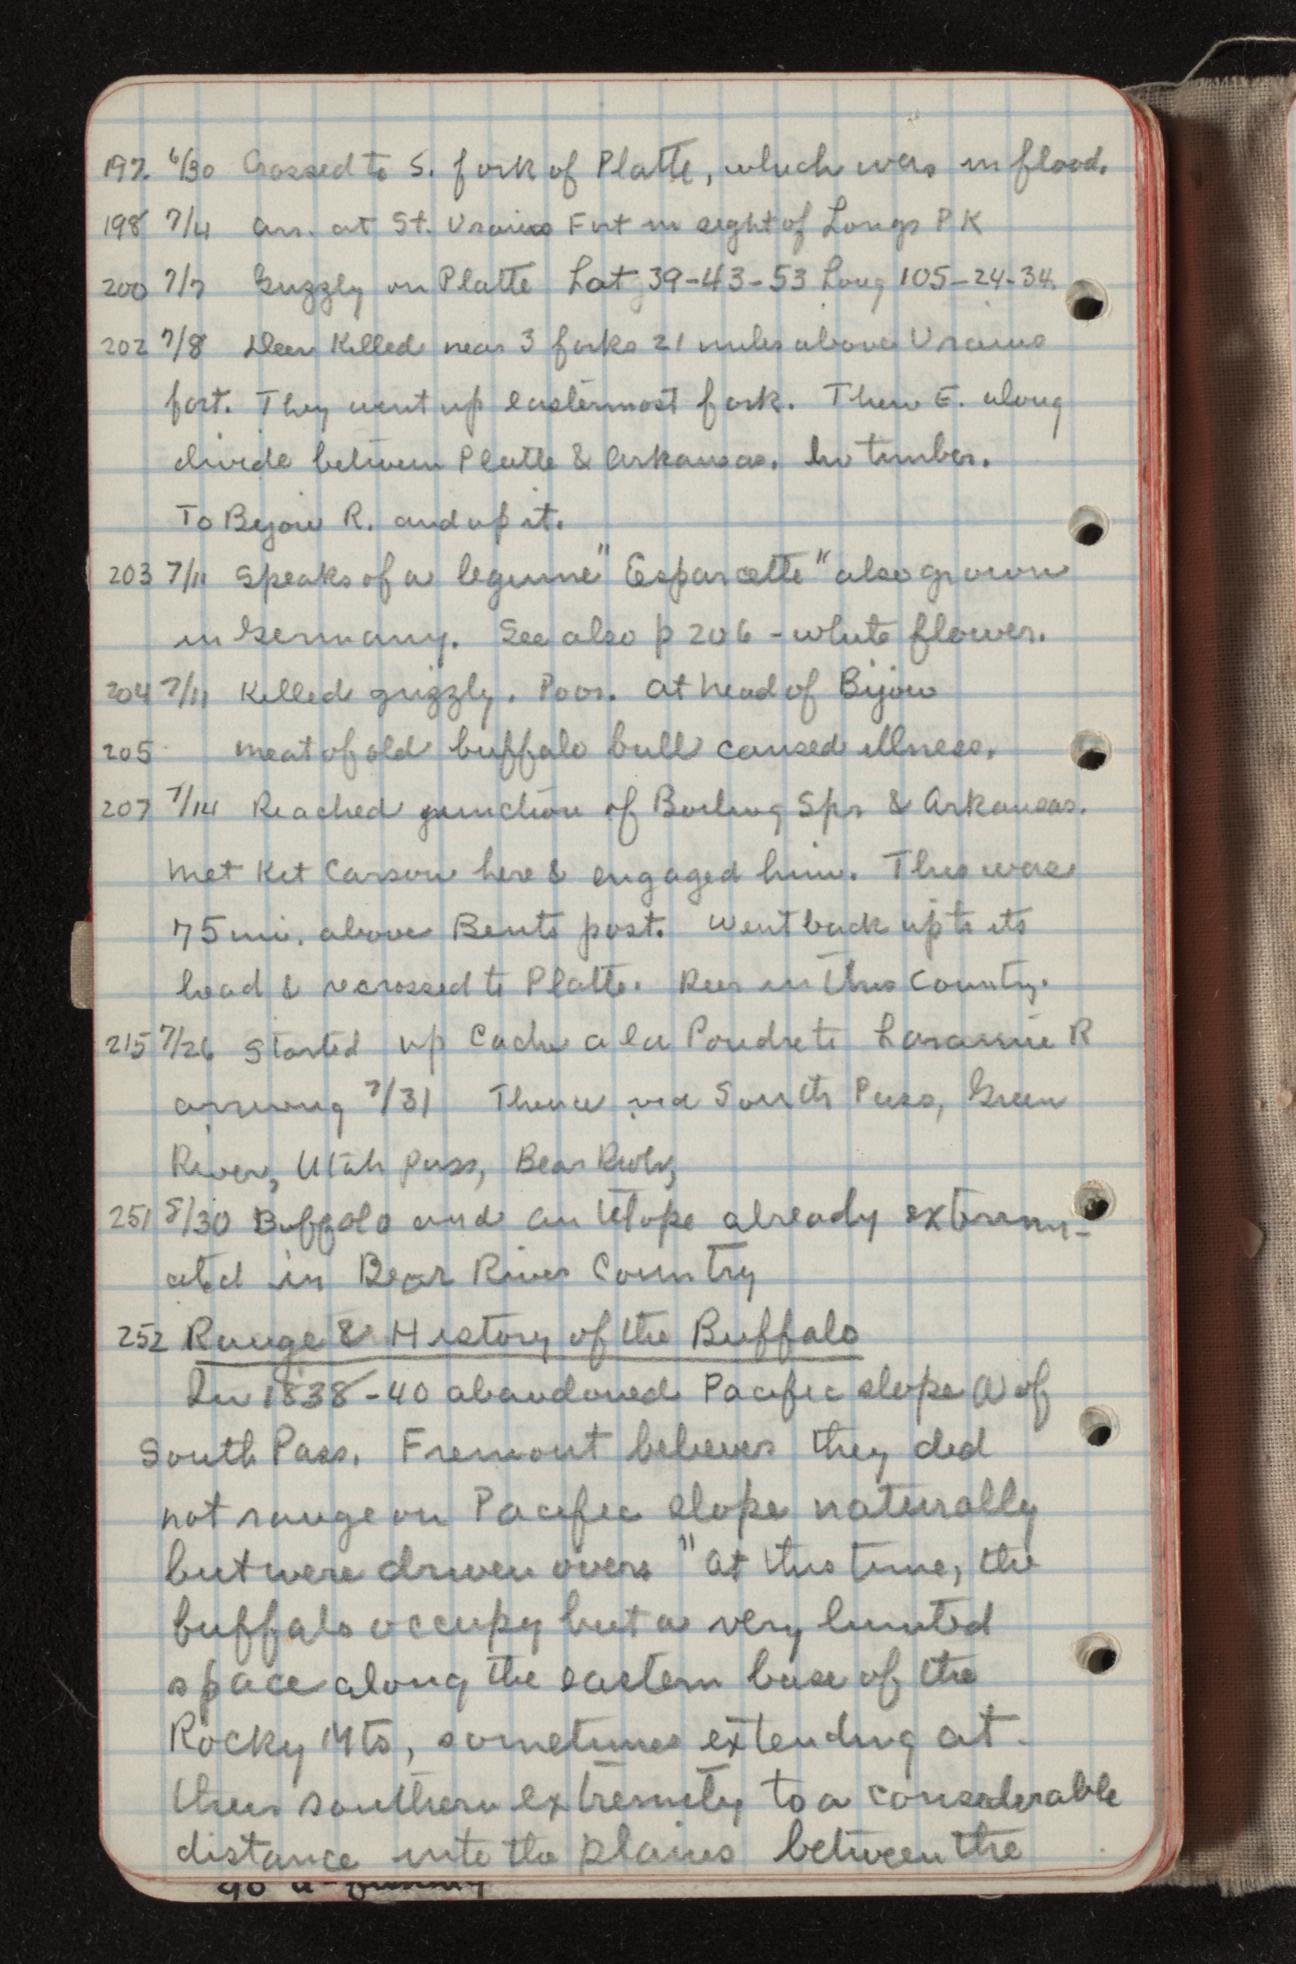 197. 6/30 Crossed to S. fork of Platte, which was in flood.
198 7/4 arr. at St. Vrains Fort in sight of Longs PK
200 7/7 Grizzly on Platte Lat 39-43-53 Long 105-24-34.
202 7/8 Deer Killed near 3 forks 21 miles above Vrains
fort. They went up easternmost fork. Then E. along
divide between Platte & Arkansas. No timber.
To Bijou R. and up it.
203 7/11 Speaks of a legume "Esparcette" also grown
in Germany. See also p 206 - white flower.
204 7/11 Killed grizzly. Poor. at head of Bijou
205 meat of old buffalo bull caused illness.
207 7/14 Reached junction of Boiling Spr & Arkansas.
Met Kit Carson here & engaged him. This was
75 mi. above Bents post. Went back up to its
head & recrossed to Platte. Deer in this Country.
215 7/26 Started up Cache a la Poudre to Laramie R
arriving 7/31 Thence via South Pass, Green
River, Utah pass, Bear River,
251 8/30 Buffalo and antelope already extermin-
ated in Bear River Country
252 Range & History of the Buffalo
In 1838-40 abandoned Pacific slope W of
South Pass. Fremont believes they did
not range on Pacific slope naturally
but were driven overs "at this time, the
buffalo occupy but a very limited
space along the eastern base of the
Rocky Mts, sometimes extending at
their southern extremity to a considerable
distance into the plains between the